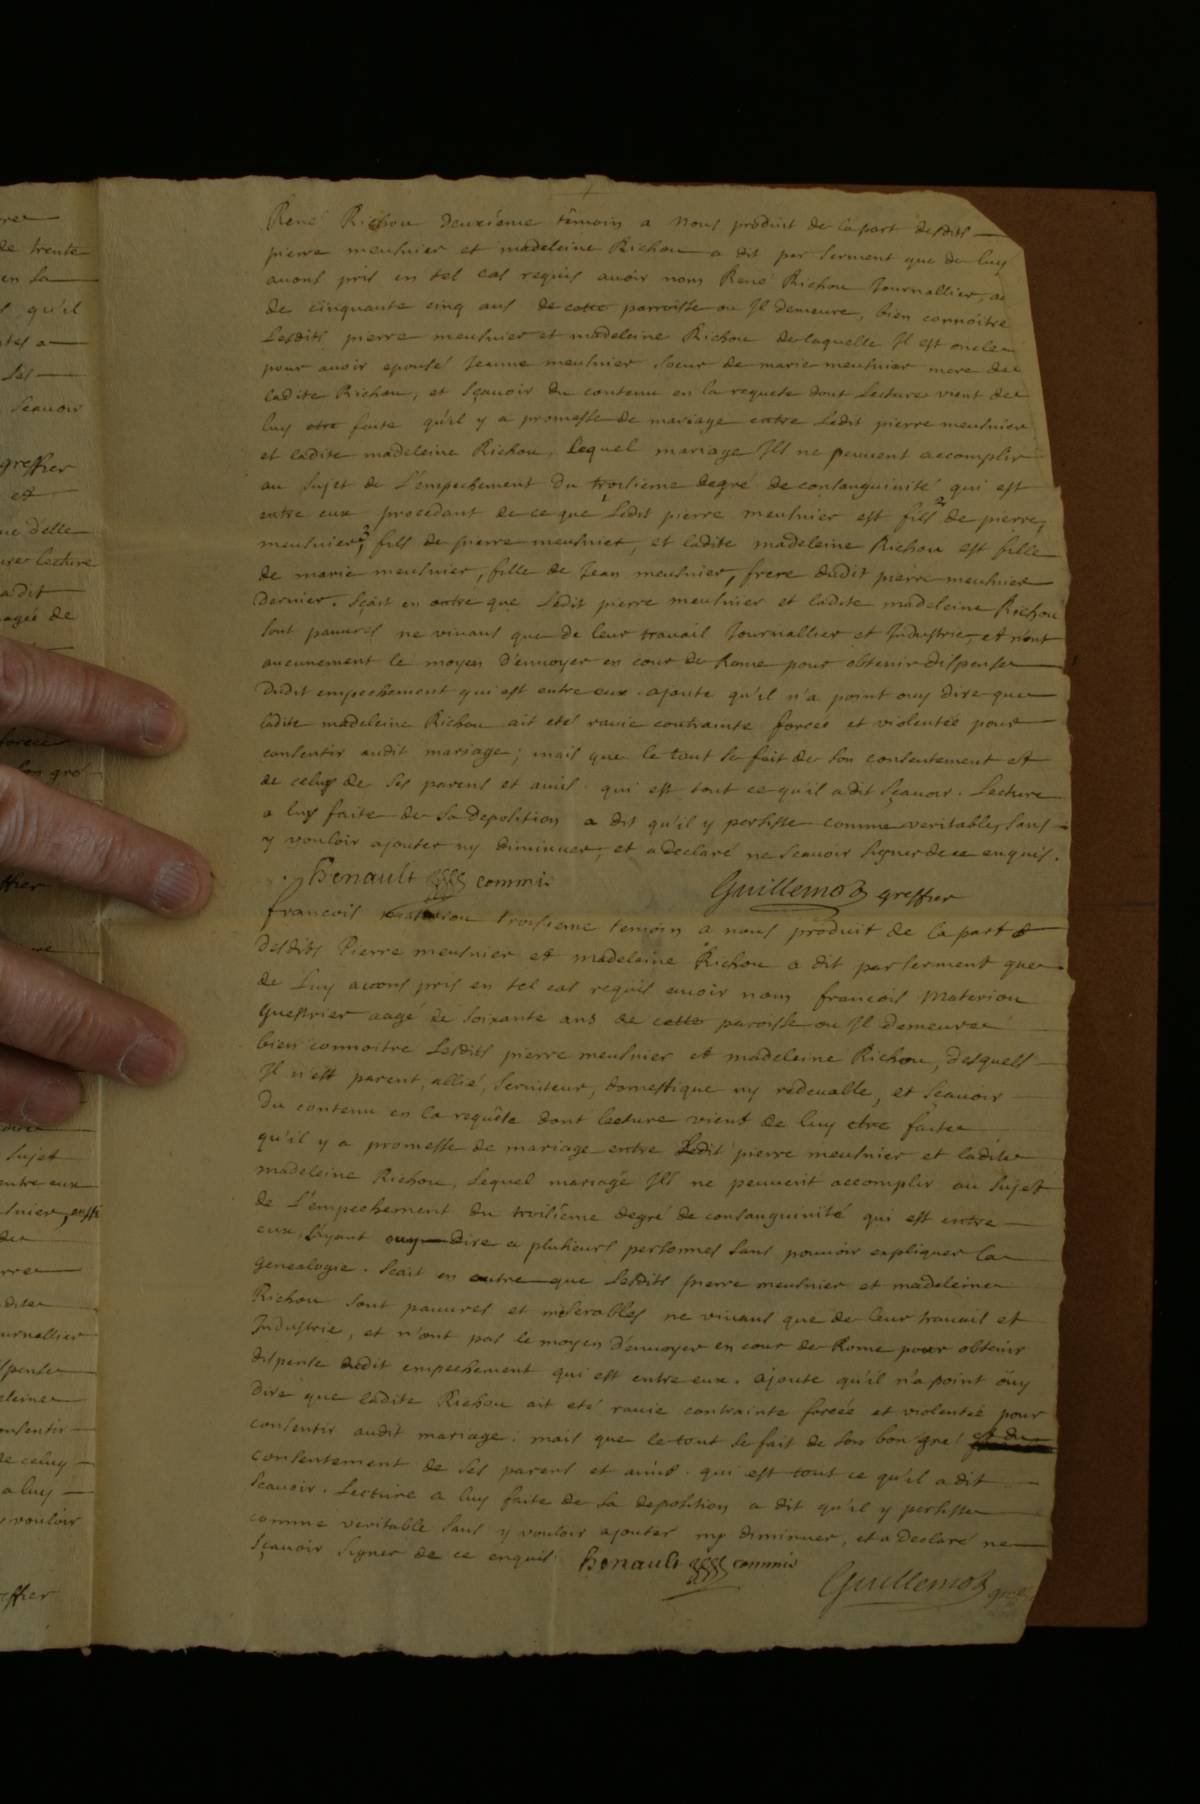 René Richou deuxiéme témoin a nous produit de la part desdits
pierre meusnier et madeleine Richou a dit par serment que de luy
avons pris en tel cas requis avoir nom René Richou Journallier, a
de cinquante cinq ans de cette parroisse ou Il demeure, bien connoitre
Lesdits pierre meusnier et madeleine Richou de laquelle Il est oncle
pour avoir epousé Jeanne meusnier soeur de marie meusnier mere de
ladite Richou, et sçavoir du contenu en la requete dont Lecture vient de
luy etre faite qu'il y a promesse de mariage entre Ledit pierre meusnier
et ladite madeleine Richou, Lequel mariage Ils ne peuvent accomplir
au sujet de L'empechement du troisieme degré de consanguinité qui est
entre eux procedant de ce que Ledit pierre meusnier est fils 2 de pierre
meusnier, 3 fils de pierre meusnier, et ladite madeleine Richou est fille
de marie meusnier, fille de Jean meusnier, frere dudit pierre meusnier
dernier. Sçait en outre que Ledit pierre meusnier et ladite madeleine Richou
sont pauvres ne vivans que de leur travail Journallier et Industrie, et n'ont
aucunement le moyen d'envoyer en cour de Rome pour obtenir dispense
dudit empechement qui est entre eux. ajoute qu'il n'a point ouy dire que
ladite madeleine Richou ait eté ravie contrainte forcée et violentée pour
consentir audit mariage; mais que le tout se fait de son consentement et
de celuy de ses parens et amis. qui est tout ce qu'il a dit sçavoir. Lecture
a luy faite de sa deposition a dit qu'il y persiste comme veritable, sans
y vouloir ajouter ny diminuer, et a declaré ne sçavoir signer de ce enquis.
henault commis Guillemot greffier
francois materiou troisieme temoin a nous produit de la part
desdits Pierre meusnier et madeleine Richou a dit par serment que
de Luy avons pris en tel cas requis avoir nom francois Materiou
Guestrier aagé de soixante ans de cette paroisse ou Il demeure
bien connoitre Lesdits pierre meusnier et madeleine Richou, desquels
Il n'est parent, allié, serviteur, domestique ny redevable, et sçavoir
du contenu en la requête dont lecture vient de luy etre faite
qu'il y a promesse de mariage entre Ledit pierre meusnier et ladite
madeleine Richou, Lequel mariage Ils ne peuvent accomplir au sujet
de L'empechement du troisieme degré de consanguinité qui est entre
eux, L'ayant ouy dire a plusieurs personnes sans pouvoir expliquer la
genealogie. Scait en outre que Lesdits pierre meusnier et madeleine
Richou sont pauvres et miserables ne vivans que de leur travail et
Industrie, et n'ont pas le moyen d'envoyer en cour de Rome pour obtenir
dispense dudit empechement qui est entre eux. ajoute qu'il n'a point ouy
dire que ladite Richou ait eté ravie contrainte forcée et violentée pour
consentir audit mariage: mais que le tout se fait de son bon gré et du
consentement de ses parens et amis. qui est tout ce qu'il a dit
sçavoir. Lecture a luy faite de sa deposition a dit qu'il y persiste
comme veritable sans y vouloir ajouter ny diminuer, et a declaré ne
sçavoir signer de ce enquis. henault commis
Guillemot